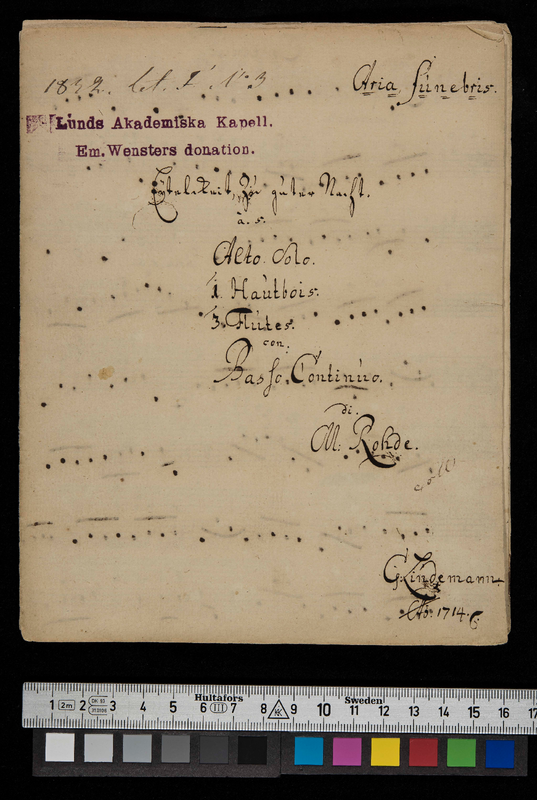 1832. lit. I. No 3
Aria funebris.
Lunds Akademiska Kapell.
Em. Wensters donation.
Eytelckeit, Zu guter Nacht.
à. 5.
Alto Solo.
1. Hautbois.
3. Flutes.
con:
Basso Continuo.
di
M: Rohde.
G: Lindemann.
Ao: 1714.
Hultafors
Sweden
2m
1 2 3 4 5 6 7 8 9 10 11 12 13 14 15 16 17